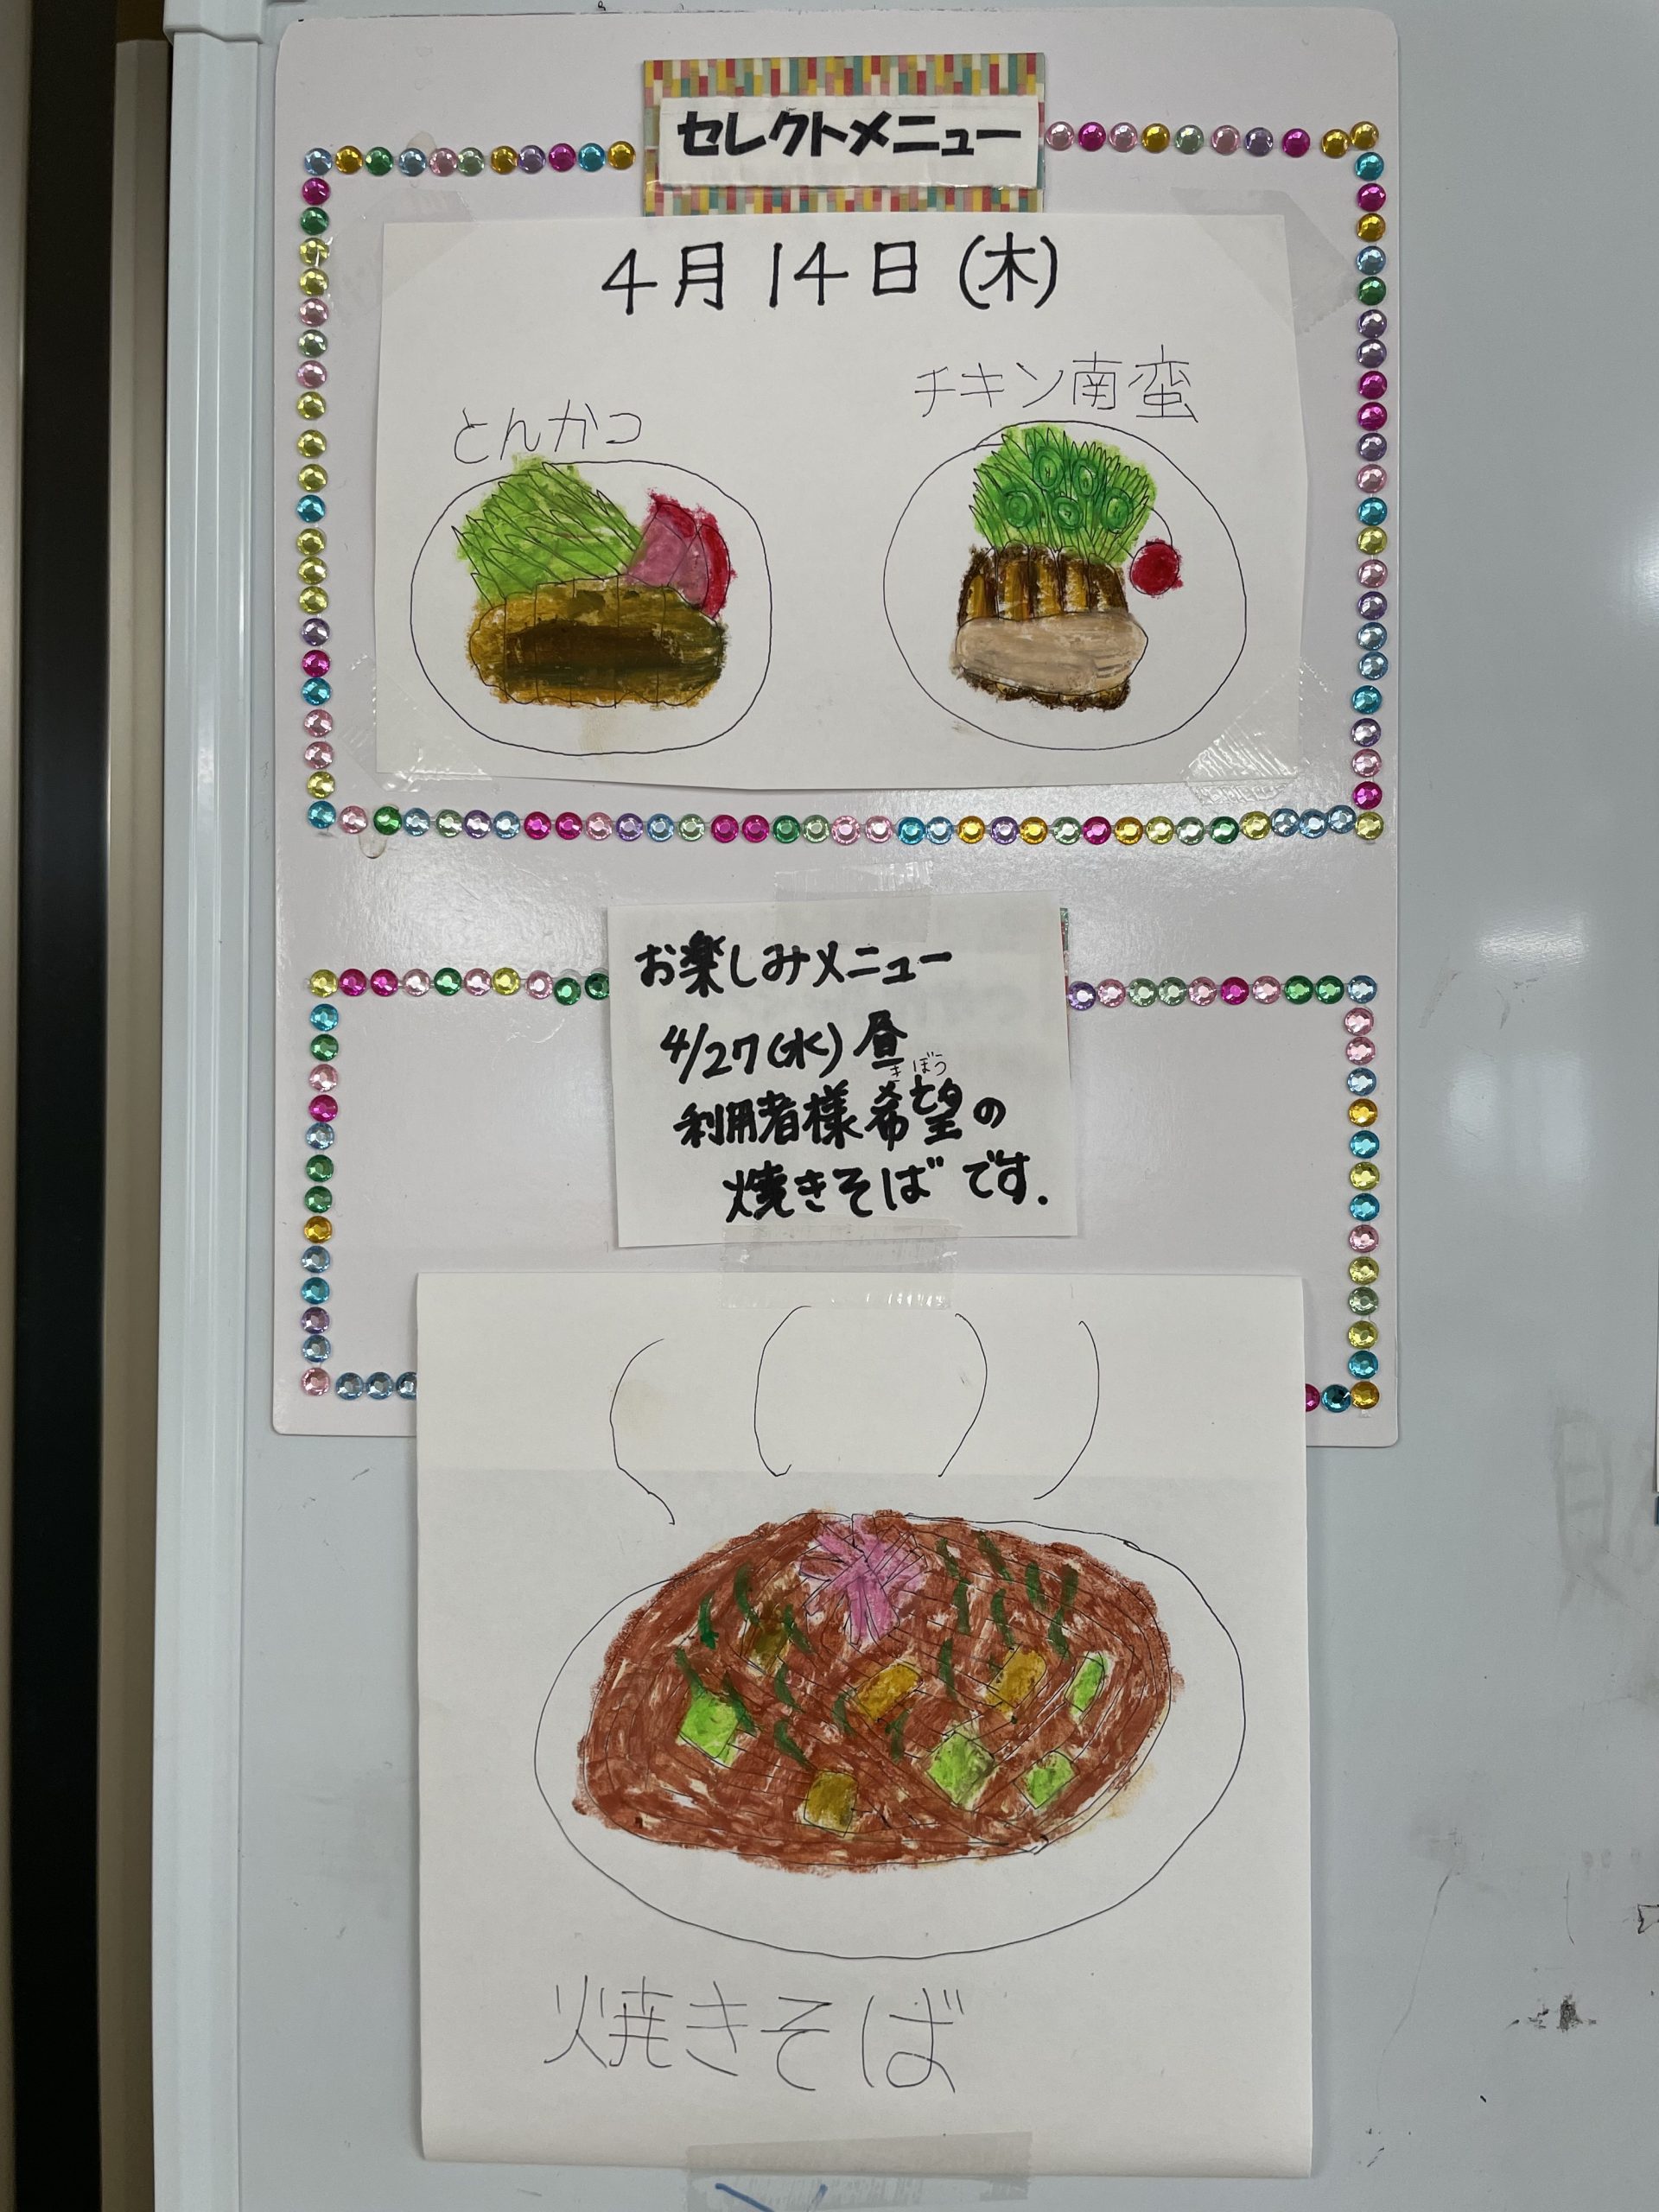 セレクトメニュー
4月14日(木)
とんかつ
チキン南蛮
お楽しみメニュー
4/27(水)昼
きぼう
利用者様希望の
焼きそばです.
焼きそば